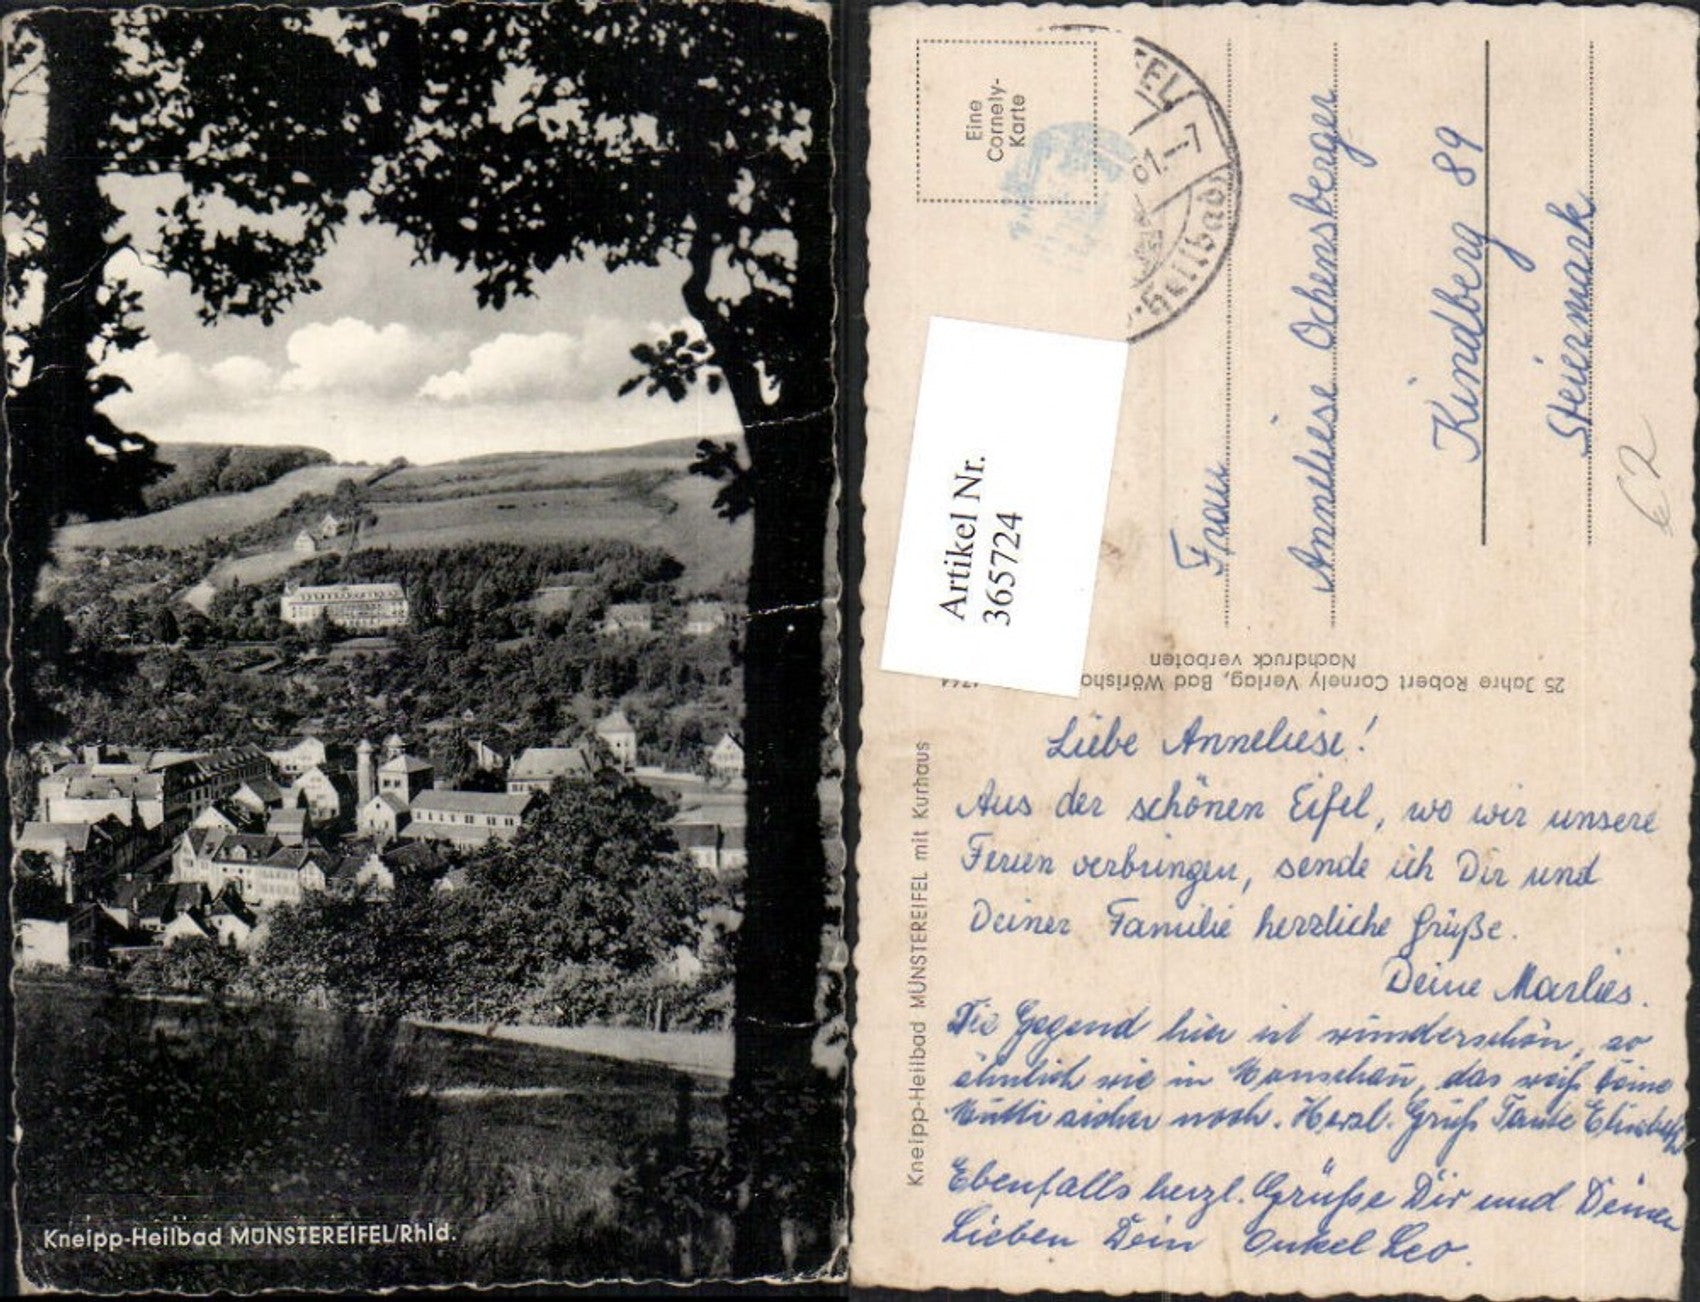 Kneipp-Heilbad MÜNSTEREIFEL/Rhld.
Eine
Cornely-
Karte
61.-7
Heilbad
Artikel Nr.
3657​24
Frau
Anneliese Ochensberger
Kindberg 89
Steiermark
€2
25 Jahre Robert Cornely Verlag, Bad
Nachdruck verboten
Kneipp-Heilbad MÜNSTEREIFEL mit Kurhaus
Liebe Anneliese!
Aus der schönen Eifel, wo wir unsere
Ferien verbringen, sende ich Dir und
Deiner Familie herzliche Grüße.
Deine Marlies.
Die Gegend hier ist wunderschön, so
ähnlich wie in Monschau, das weiß Deine
Mutti sicher noch. Herzl. Gruß Tante Elisabeth
Ebenfalls herzl. Grüße Dir und Deinen
Lieben Dein Onkel Leo.